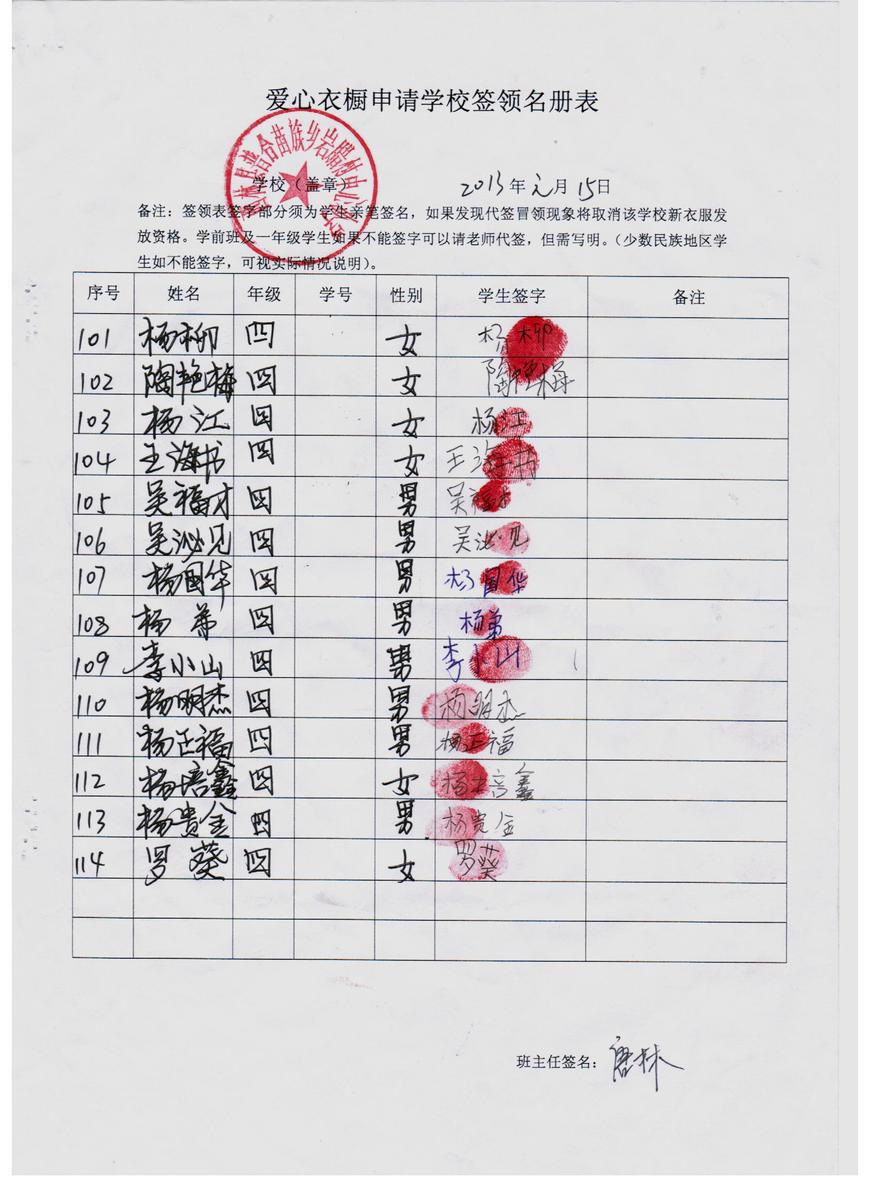 爱心衣橱申请学校签领名册表
学校（盖章） 2013年元月15日
备注：签领表签字部分须为学生亲笔签名，如果发现代签冒领现象将取消该学校新衣服发
放资格。学前班及一年级学生如果不能签字可以请老师代签，但需写明。（少数民族地区学
生如不能签字，可视实际情况说明）。
序号 姓名 年级 学号 性别 学生签字 备注
101 杨柳 四 女 杨柳
102 陶艳梅 四 女 陶艳梅
103 杨江 四 女 杨江
104 王海书 四 女 王海书
105 吴福才 四 男 吴福才
106 吴泌见 四 男 吴泌见
107 杨国华 四 男 杨国华
108 杨弟 四 男 杨弟
109 李小山 四 男 李小山
110 杨明杰 四 男 杨明杰
111 杨正福 四 男 杨正福
112 杨培鑫 四 女 杨培鑫
113 杨贵金 四 男 杨贵金
114 罗葵 四 女 罗葵
班主任签名：唐林